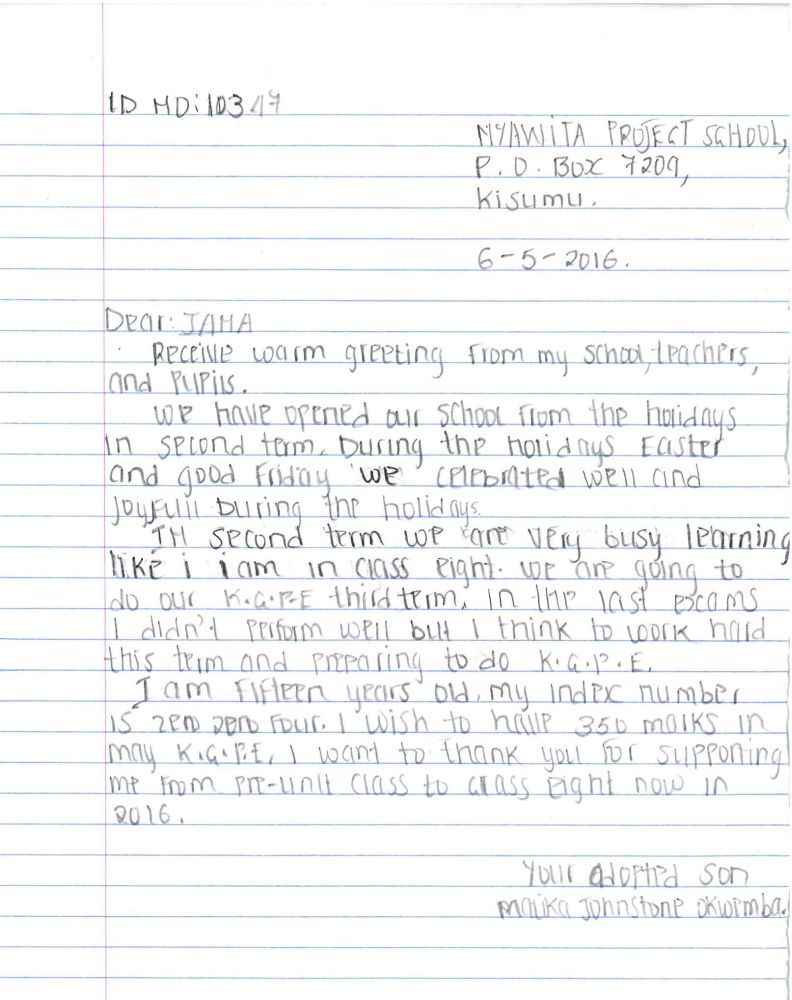 ID MD:10317
NYAWITA PROJECT SCHOOL,
P.O. BOX 7209,
Kisumu.
6-5-2016.
Dear: JAMA
Receive warm greeting from my school, teachers,
and pupils.
We have opened our school from the holidays
in second term. During the holidays Easter
and good Friday we celebrated well and
joyfull During the holidays.
IN second term we are very busy learning
like i i am in class eight. We are going to
do our K.C.P.E third term. In the last exams
I didn't perform well but I think to work hard
this term and preparing to do K.C.P.E.
I am fifteen years old, my index number
is zero zero four. I wish to have 350 marks in
may K.C.P.E, I want to thank you for supporting
me from pre-unit class to class eight now in
2016.
Your adopted son
Johnstone